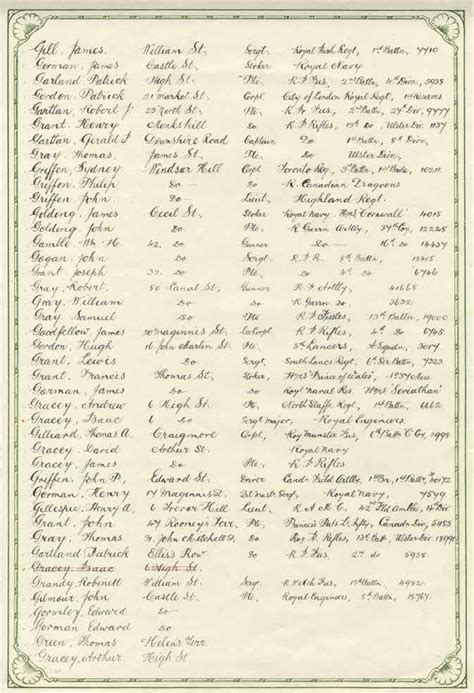 Gill, James. William St. Sergt. Royal Irish Regt, 1st Battn, 7710
Gorman, James Castle St. Stoker Royal Navy
Garland, Patrick High St. Pte. R. I. Fus, 2nd Battn, 4th Divn, 5938
Gordon, Patrick 21 Market St. Corpl City of London Royal Regt, 1st Reserves
Gartlan, Robert J 25 North St. Pte. R. I. Fus, 2nd Battn, 27 Divn,
Grant, Henry Monkshill Do R. I. Rifles, 13th Do Ulster Div, 1137
Gartlan, Gerald I Downshire Road Captain Do 1st Battn, 8th Divn,
Gray, Thomas, James St. Pte. Do Ulster Divn,
Griffen, Sydney Windsor Hill Corpl Toronto Regt, 3rd Battn, 1st Bde, 10211
Griffen, Philip Do Do R. Canadian Dragoons
Griffen, John Do Lieut. Highland Regt,
Golding, James Cecil St. Stoker Royal Navy Hms "Cornwall" 4015
Golding, John Do Pte. R Garrn Artlly, 37th Coy, 12228
Gamble, Wm H. 42. Do Gunner Do 16th Do 14437
Gogan, John Do Sergt. R. I. R. 8th Battn, 15415
Grant Joseph 32 Do Pte. Do 4th Do 6746
Gray, Robert. 80 Canal St. Gunner R. F. Artlly, 41668
Gray, William Do Do R Garrn Do 3632
Gray Samuel Do Pte. R I Fusles, 13th Battn, 19000
Goodfellow, James 20 Maginnis St. La Corpl R. I. Rifles, 4th Do 6745
Gordon, Hugh 16 John Martin St. Pte. 5th Lancers, A Sqadn, 3017
Grant, Lewis Do Sergt. South Lancs Regt, 6th Ser. Battn, 7323
Grant, Francis Thomas St. Stoker, Hms "Prince of Wales",
Gorman, James Do Do Royl Naval Res Hms "Leviathan"
Gracey, Andrew 6 High St. Pte. North Staffs Regt, 1st Battn, 6662
Gracey, Isaac 6 Do Sergt Major, Royal Engineers.
Gilliard, Thomas A. Craigmore Corpl, Roy Munster Fus, 6th Battn C Coy, 2998
Gracey David Arthur St. Royal Navy
Gracey, James Do R I Rifles
Griffen, John P, Edward St. Driver Cand. Field Artlly,
Gorman, Henry 17 Maginnis St. Royal Navy,
Gillespie, Henry A 6 Trevor Hill Lieut. R. A. M. C. 42 Fld Amblce, 14 Div,
Grant, John 47 Rooney's Terr. Pte. Princess Pats Lt Infty, Canadn Div, 51183
Gray, Thomas, 31 John Mitchell St. Do Roy I. Rifles, 13th Battn, Ulster Div 18091
Gartland Patrick Ellis's Row Do R. I. Fus. 2nd Do 5938.
Gracey Isaac 6 High St.
Grandy Robinett William St. Sergt. R Welsh Fus, 13th Battn, 4982.
Gilmour, John Castle St. Pte. Royal Engineers, 8th Battn, 18767.
Gormley Edward Do
Gorman Edward Do
Green, Thomas Helens Terr.
Gracey, Arthur High St